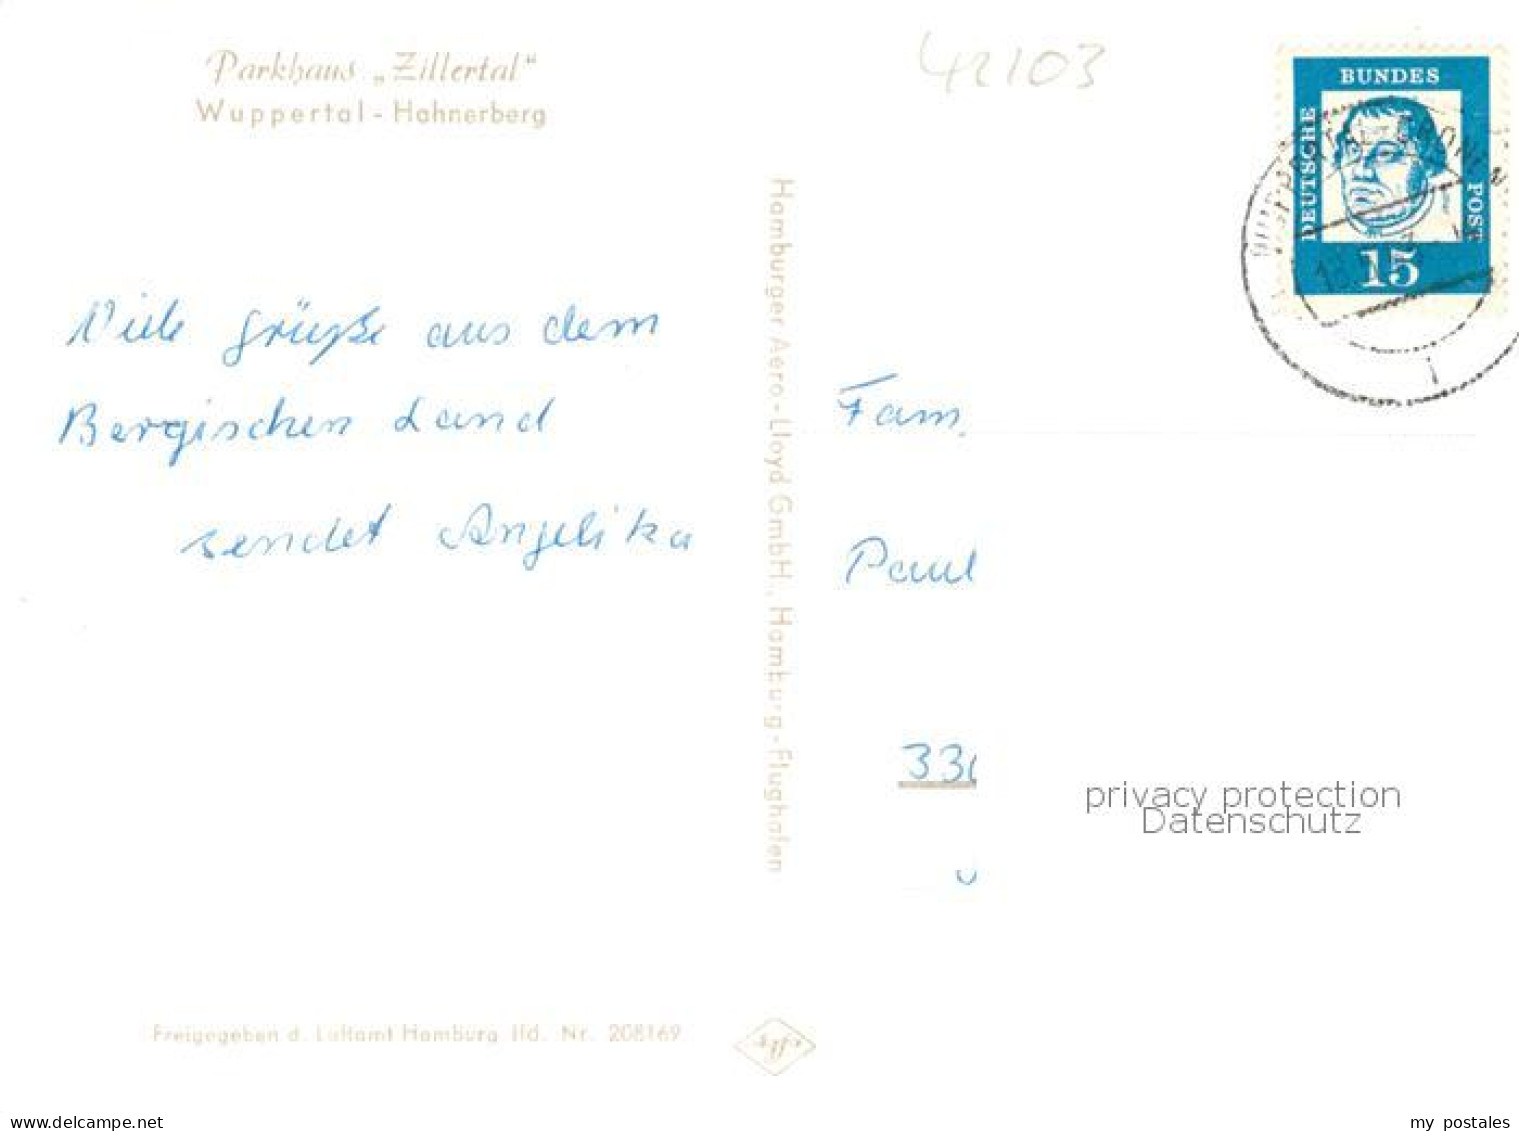 Parkhaus „Zillertal“
Wuppertal - Hahnerberg
42103
BUNDES
DEUTSCHE
POST
15
WUPPERTAL-CRONEN
Viele Grüße aus dem
Bergischen Land
sendet Angelika
Hamburger Aero-Lloyd GmbH., Hamburg-Flughafen
Fam.
Paul
33
privacy protection
Datenschutz
Freigegeben d. Luftamt Hamburg lfd. Nr. 208169
delcampe.net
my_postales